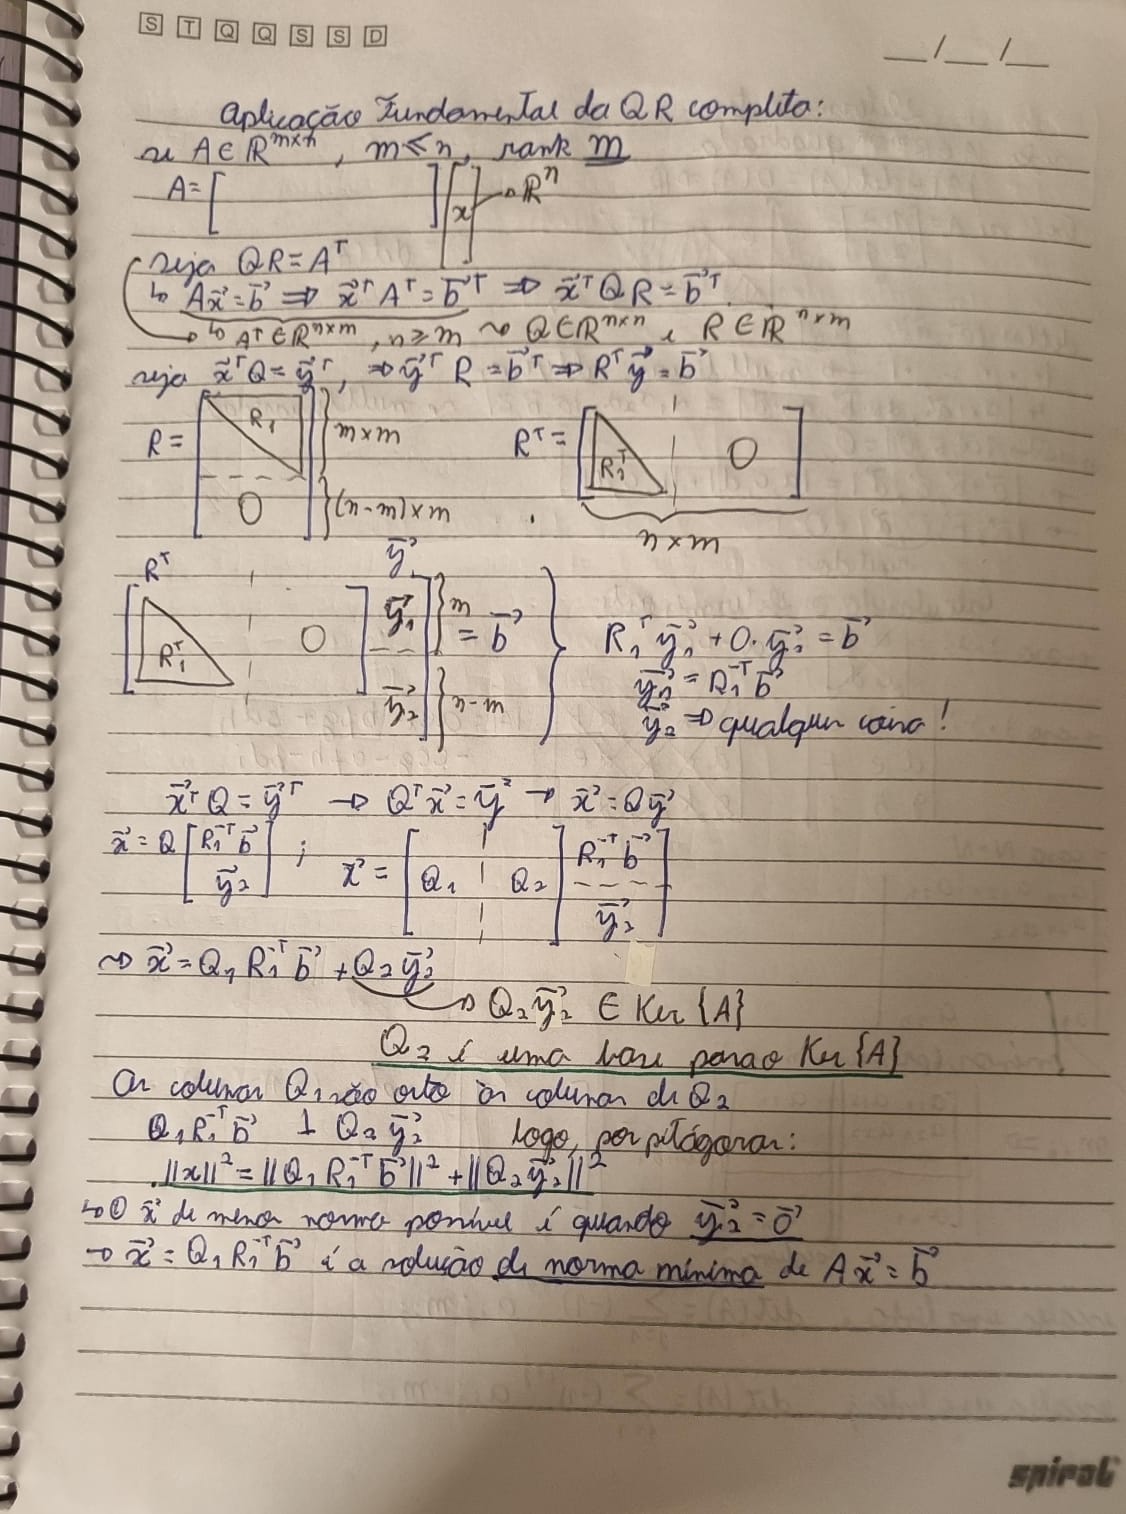 S T Q Q S S D
__/__/__
Aplicação Fundamental da QR completa:
se A ∈ ℝ^{m×n}, m ≤ n, rank m
A = [ ] [x] → ℝⁿ
seja QR = Aᵀ
↳ Ax⃗ = b⃗ ⇒ x⃗ᵀAᵀ = b⃗ᵀ ⇒ x⃗ᵀQR = b⃗ᵀ.
↳ Aᵀ ∈ ℝ^{n×m}, n ≥ m ⤳ Q ∈ ℝ^{n×n} e R ∈ ℝ^{n×m}
seja x⃗ᵀQ = y⃗ᵀ, ⇒ y⃗ᵀR = b⃗ᵀ ⇒ Rᵀy⃗ = b⃗
R = [R₁ 0] } m×m } (n-m)×m Rᵀ = [R₁ᵀ 0] n×m
Rᵀ y⃗
[R₁ᵀ 0] [y⃗₁ y⃗₂] } m } n-m = b⃗
R₁ᵀy⃗₁ + 0·y⃗₂ = b⃗
y⃗₁ = R₁⁻ᵀb⃗
y⃗₂ ⇒ qualquer coisa!
x⃗ᵀQ = y⃗ᵀ → Qᵀx⃗ = y⃗ → x⃗ = Qy⃗
x⃗ = Q [R₁⁻ᵀb⃗ y⃗₂] ; x⃗ = [Q₁ Q₂] [R₁⁻ᵀb⃗ y⃗₂]
⤳ x⃗ = Q₁R₁⁻ᵀb⃗ + Q₂y⃗₂
→ Q₂y⃗₂ ∈ Ker{A}
Q₂ é uma base para o Ker{A}
As colunas Q₁ são orto às colunas de Q₂
Q₁R₁⁻ᵀb⃗ ⊥ Q₂y⃗₂ logo, por pitágoras:
||x||² = ||Q₁R₁⁻ᵀb⃗||² + ||Q₂y⃗₂||²
↳ O x⃗ de menor norma possível é quando y⃗₂ = 0⃗
→ x⃗ = Q₁R₁⁻ᵀb⃗ é a solução de norma mínima de Ax⃗ = b⃗
spiral